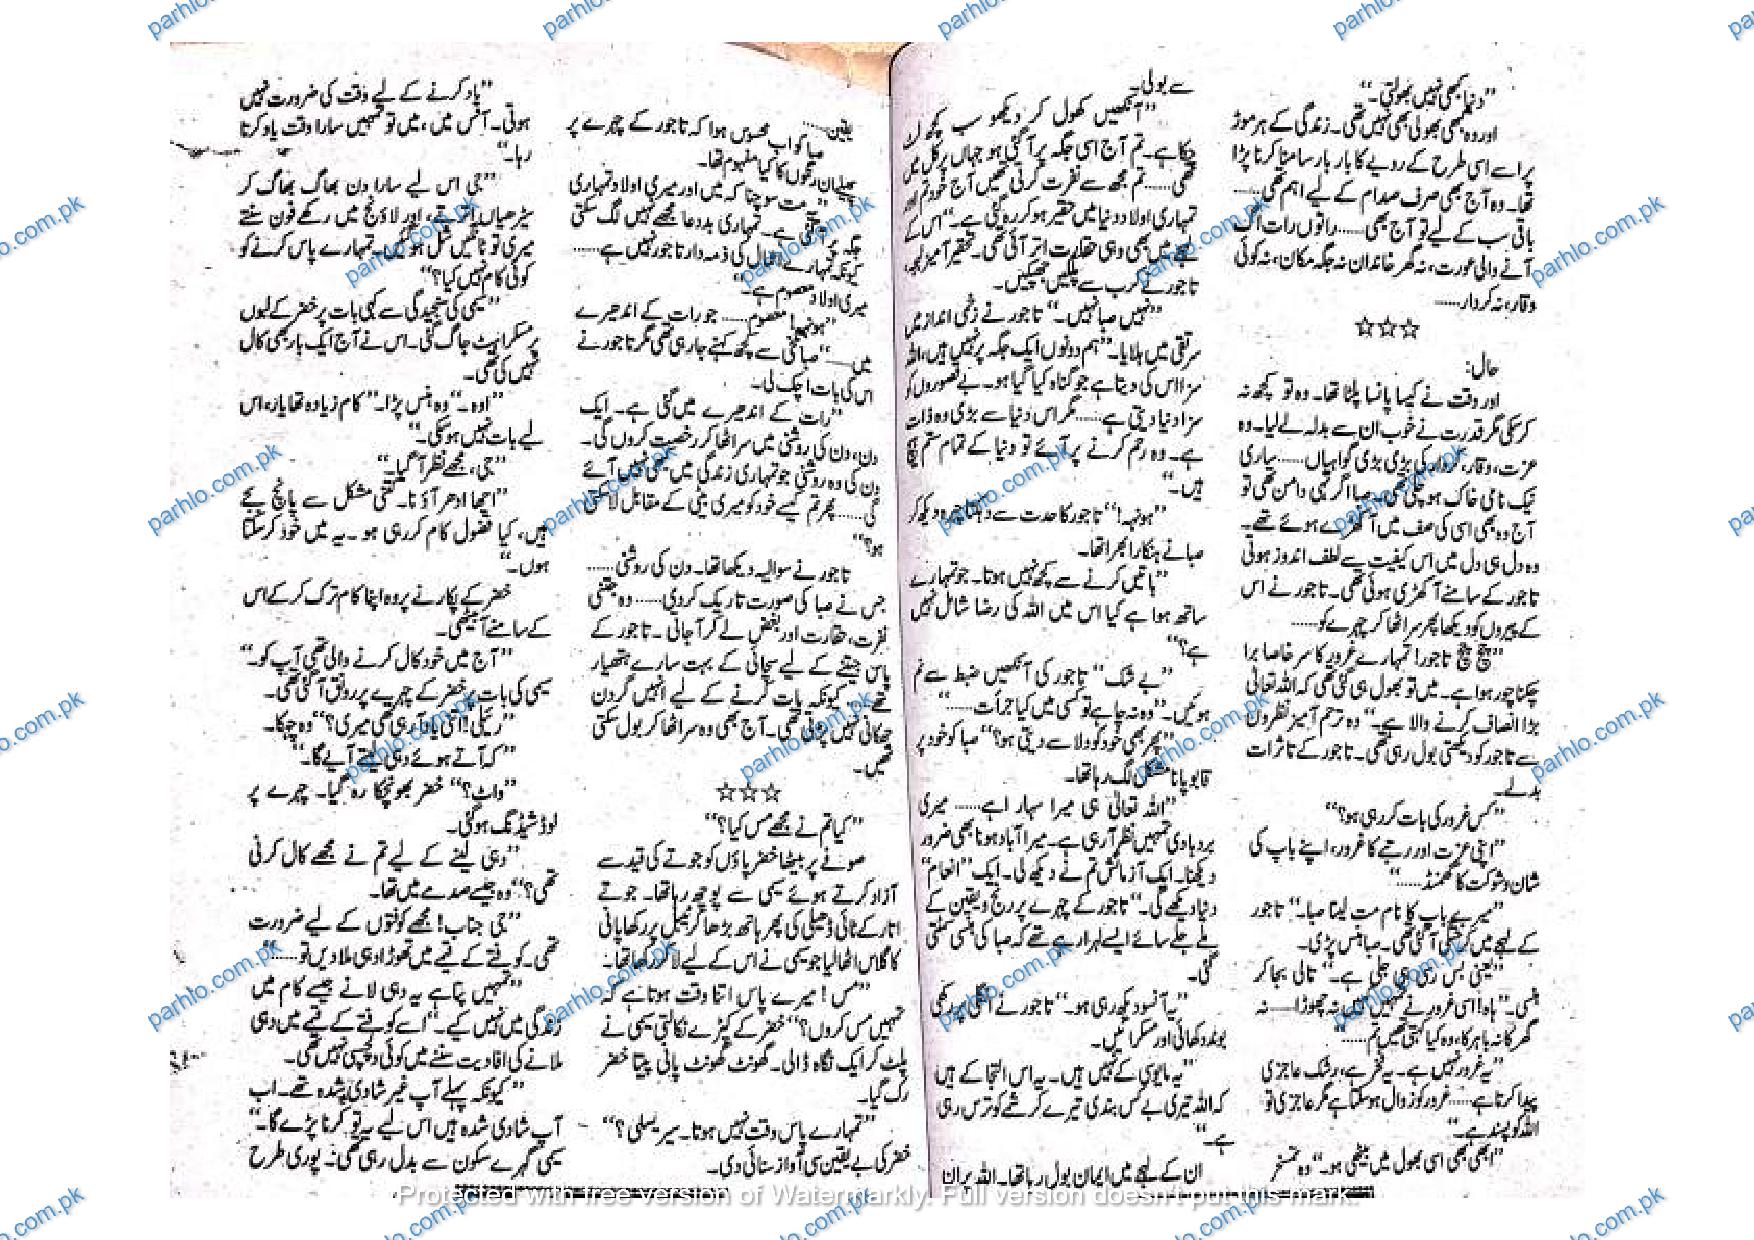 ”دنیا کبھی نہیں بھولتی۔“
اور وہ کبھی بھولی بھی نہیں تھی۔ زندگی کے ہر موڑ
پر اسے اسی طرح کے رویے کا بار بار سامنا کرنا پڑا
تھا۔ وہ آج بھی صرف صدام کے لیے اہم تھی......
باقی سب کے لیے تو آج بھی...... راتوں رات
آنے والی عورت، نہ گھر خاندان نہ جگہ مکان، نہ کوئی
وقار، نہ کردار......
☆☆☆
حال:
اور وقت نے کیسا پانسا پلٹا تھا۔ وہ تو کچھ نہ
کر سکی مگر قدرت نے خوب ان سے بدلہ لے لیا۔ وہ
عزت، وقار، کردار کی بڑی بڑی گواہیاں...... ساری
نیک نامی خاک ہو چکی تھی۔ صبا اگر تہی دامن تھی تو
آج وہ بھی اسی کی صف میں آ کھڑے ہوئے تھے۔
وہ دل ہی دل میں اس کیفیت سے لطف اندوز ہوتی
تاجور کے سامنے آ کھڑی ہوئی تھی۔ تاجور نے اس
کے پیروں کو دیکھا پھر سر اٹھا کر چہرے کو......
”چچ چچ تاجور! تمہارے غرور کا سر خاصا برا
چکنا چور ہوا ہے۔ میں تو بھول ہی گئی تھی کہ اللہ تعالیٰ
بڑا انصاف کرنے والا ہے۔“ وہ ترحم آمیز نظروں
سے تاجور کو دیکھتی بول رہی تھی۔ تاجور کے تاثرات
بدلے۔
”کس غرور کی بات کر رہی ہو؟“
”اپنی عزت اور رتبے کا غرور، اپنے باپ کی
شان و شوکت کا گھمنڈ......“
”میرے باپ کا نام مت لینا صبا۔“ تاجور
کے لہجے میں سختی آ گئی تھی۔ صبا ہنس پڑی۔
”یعنی بس رسی ہی جلی ہے۔“ تالی بجا کر
ہنسی۔ ”ہاہ! اسی غرور نے تمہیں کہیں نہ چھوڑا...... نہ
گھر کا نہ باہر کا، وہ کیا کہتی تھیں تم......“
”یہ غرور نہیں ہے۔ یہ فخر ہے، رشک عاجزی
پیدا کرتا ہے...... غرور کو زوال ہو سکتا ہے مگر عاجزی تو
اللہ کو پسند ہے۔“
”ابھی بھی اسی بھول میں بیٹھی ہو۔“ وہ تمسخر
سے بولی۔
”آنکھیں کھول کر دیکھو سب کچھ
چکا ہے۔ تم آج اسی جگہ پر آ گئی ہو جہاں پر کل میں
تھی...... تم مجھ سے نفرت کرتی تھیں آج خود تم اور
تمہاری اولاد دنیا میں حقیر ہو کر رہ گئی ہے۔“ اس کے
لہجے میں بھی وہی حقارت اتر آئی تھی۔ تحقیر آمیز لہجہ،
تاجور نے کرب سے پلکیں جھپکیں۔
”نہیں صبا نہیں۔“ تاجور نے زخمی انداز میں
سر نفی میں ہلایا۔ ”ہم دونوں ایک جگہ پر نہیں ہیں، اللہ
سزا اس کی دیتا ہے جو گناہ کیا گیا ہو۔ بے قصوروں کو
سزا دنیا دیتی ہے...... مگر اس دنیا سے بڑی وہ ذات
ہے۔ وہ رحم کرنے پر آئے تو دنیا کے تمام ستم
ہیں۔“
”ہونہہ!“ تاجور کا حدت سے چہرہ دیکھ کر
صبا نے ہنکارا بھرا تھا۔
”باتیں کرنے سے کچھ نہیں ہوتا۔ جو تمہارے
ساتھ ہوا ہے کیا اس میں اللہ کی رضا شامل نہیں
ہے؟“
”بے شک“ تاجور کی آنکھیں ضبط سے نم
ہوئیں۔ ”وہ نہ چاہے تو کسی میں کیا جرأت......“
”پھر بھی خود کو دلاسے دیتی ہو؟“ صبا کو خود پر
قابو پانا مشکل لگ رہا تھا۔
”اللہ تعالیٰ ہی میرا سہارا ہے...... میری
بربادی تمہیں نظر آ رہی ہے۔ میرا آباد ہونا بھی ضرور
دیکھنا۔ ایک آزمائش تم نے دیکھ لی۔ ایک ”انعام“
دنیا دیکھے گی۔“ تاجور کے چہرے پر رنج و یقین کے
ملے جلے سائے ایسے لہرا رہے تھے کہ صبا کی ہنسی سمٹتی
گئی۔
”یہ آنسو دیکھ رہی ہو۔“ تاجور نے انگلی پر رکھی
بوند دکھائی اور مسکرائیں۔
”یہ مایوسی کے نہیں ہیں۔ یہ اس التجا کے ہیں
کہ اللہ تیری بے کس بندی تیرے کرشمے کو ترس رہی
ہے۔“
ان کے لہجے میں ایمان بول رہا تھا۔ اللہ پر ان
یقین......
صبا کو اب محسوس ہوا کہ تاجور کے چہرے پر
پھیلے ان رنگوں کا کیا مفہوم تھا۔
”یہ مت سوچنا کہ میں اور میری اولاد تمہاری
جگہ پر آ گئی ہے۔ تمہاری بددعا مجھے نہیں لگ سکتی
کیونکہ تمہارے اعمال کی ذمہ دار تاجور نہیں ہے......
میری اولاد معصوم ہے۔“
”ہونہہ! معصوم...... جو رات کے اندھیرے
میں......“ صبا تلخی سے کچھ کہنے جا رہی تھی مگر تاجور نے
اس کی بات اچک لی۔
”رات کے اندھیرے میں گئی ہے۔ ایک
دن، دن کی روشنی میں سر اٹھا کر رخصت کروں گی۔
دن کی وہ روشنی جو تمہاری زندگی میں کبھی نہیں آئے
گی...... پھر تم کیسے خود کو میری بیٹی کے مقابل لا سکتی
ہو؟“
تاجور نے سوالیہ دیکھا تھا۔ دن کی روشنی......
جس نے صبا کی صورت تاریک کر دی...... وہ جتنی
نفرت، حقارت اور بغض لے کر آ جاتی۔ تاجور کے
پاس جیتنے کے لیے سچائی کے بہت سارے ہتھیار
تھے۔ کیونکہ بات کرنے کے لیے انہیں گردن
جھکانی نہیں پڑتی تھی۔ آج بھی وہ سر اٹھا کر بول سکتی
تھیں۔
☆☆☆
”کیا تم نے مجھے مس کیا؟“
صوفے پر بیٹھا خضر پاؤں کو جوتے کی قید سے
آزاد کرتے ہوئے یمنی سے پوچھ رہا تھا۔ جوتے
اتار کے ٹائی ڈھیلی کی پھر ہاتھ بڑھا کر ٹیبل پر رکھا پانی
کا گلاس اٹھا لیا جو یمنی نے اس کے لیے لا کر رکھا تھا۔
”مس! میرے پاس اتنا وقت ہوتا ہے کہ
تمہیں مس کروں؟“ خضر کے کپڑے نکالتی یمنی نے
پلٹ کر ایک نگاہ ڈالی۔ گھونٹ گھونٹ پانی پیتا خضر
رک گیا۔
”تمہارے پاس وقت نہیں ہوتا۔ سیریسلی؟“
خضر کی بے یقین سی آواز سنائی دی۔
”یاد کرنے کے لیے وقت کی ضرورت نہیں
ہوتی۔ آفس میں، میں تو تمہیں سارا وقت یاد کرتا
رہا۔“
”جی اس لیے سارا دن بھاگ بھاگ کر
سیڑھیاں اترتے، اور لاؤنج میں رکھے فون سنتے
میری تو ٹانگیں شل ہو گئیں۔ تمہارے پاس کرنے کو
کوئی کام نہیں کیا؟“
یمنی کی سنجیدگی سے کہی بات پر خضر کے لبوں
پر مسکراہٹ جاگ گئی۔ اس نے آج ایک بار بھی کال
نہیں کی تھی۔
”اوہ۔“ وہ ہنس پڑا۔ ”کام زیادہ تھا یار، اس
لیے بات نہیں ہو سکی۔“
”جی، مجھے نظر آ گیا۔“
”اچھا ادھر آؤ نا۔ کتنی مشکل سے پانچ بجے
ہیں، کیا فضول کام کر رہی ہو۔ یہ میں خود کر سکتا
ہوں۔“
خضر کے پکارنے پر وہ اپنا کام ترک کر کے اس
کے سامنے آ بیٹھی۔
”آج میں خود کال کرنے والی تھی آپ کو۔“
یمنی کی بات پر خضر کے چہرے پر رونق آ گئی تھی۔
”رئیلی! اتنی یاد آ رہی تھی میری؟“ وہ چہکا۔
”کہ آتے ہوئے دہی لیتے آیے گا۔“
”واٹ؟“ خضر بھونچکا رہ گیا۔ چہرے پر
لوڈ شیڈنگ ہو گئی۔
”دہی لینے کے لیے تم نے مجھے کال کرنی
تھی؟“ وہ جیسے صدمے میں تھا۔
”جی جناب! مجھے کوفتوں کے لیے ضرورت
تھی۔ کوفتے کے قیمے میں تھوڑا دہی ملا دیں تو......“
”تمہیں پتا ہے یہ دہی لانے جیسے کام میں
زندگی میں نہیں کیے۔“ اسے کوفتے کے قیمے میں دہی
ملانے کی افادیت سننے میں کوئی دلچسپی نہیں تھی۔
”کیونکہ پہلے آپ غیر شادی شدہ تھے۔ اب
آپ شادی شدہ ہیں اس لیے یہ تو کرنا پڑے گا۔“
یمنی گہرے سکون سے بدل رہی تھی۔ پوری طرح
parhlo.com.pk
Protected with free version of Watermarkly. Full version doesn't put this mark.